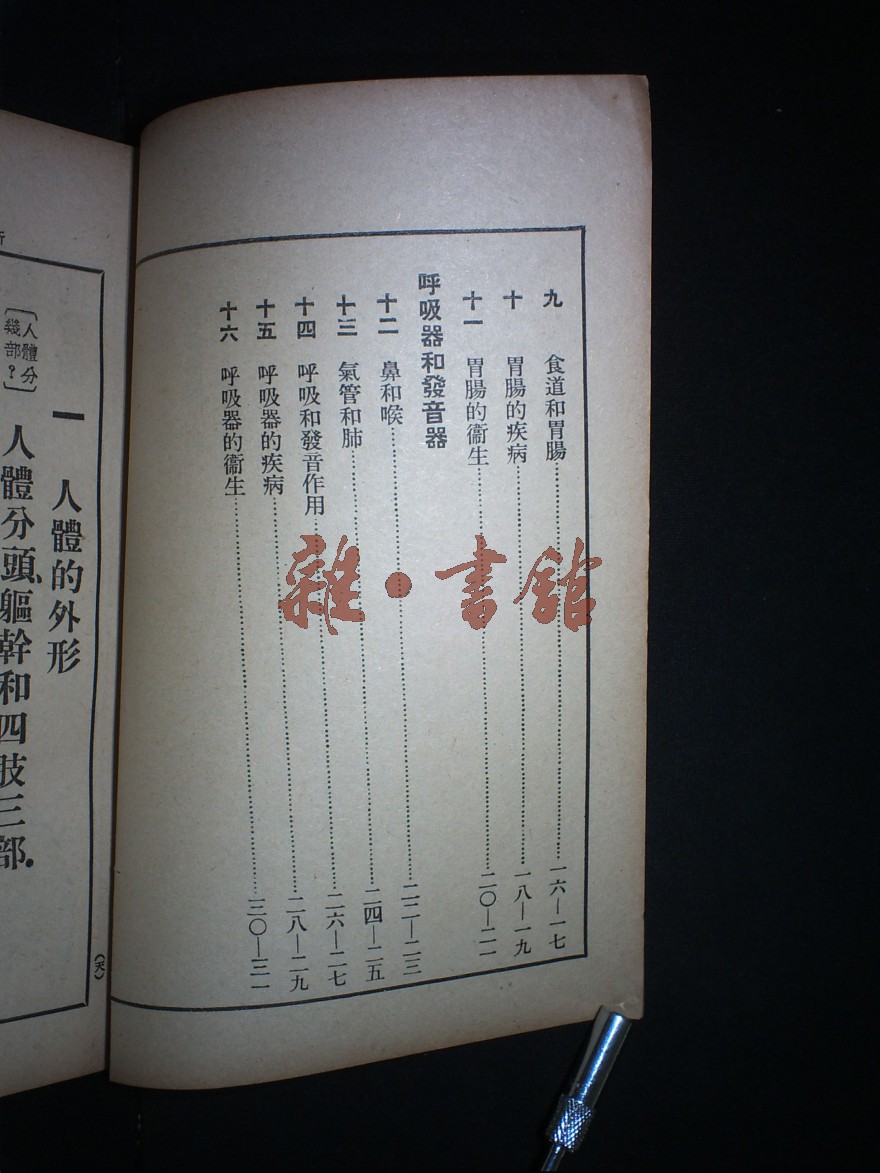 九 食道和胃腸……一六—一七
十 胃腸的疾病……一八—一九
十一 胃腸的衞生……二〇—二一
呼吸器和發音器
十二 鼻和喉……二二—二三
十三 氣管和肺……二四—二五
十四 呼吸和發音作用……二六—二七
十五 呼吸器的疾病……二八—二九
十六 呼吸器的衞生……三〇—三一
雜·書館
一 人體的外形
〔人體分幾部?〕
人體分頭、軀幹和四肢三部.
(天)